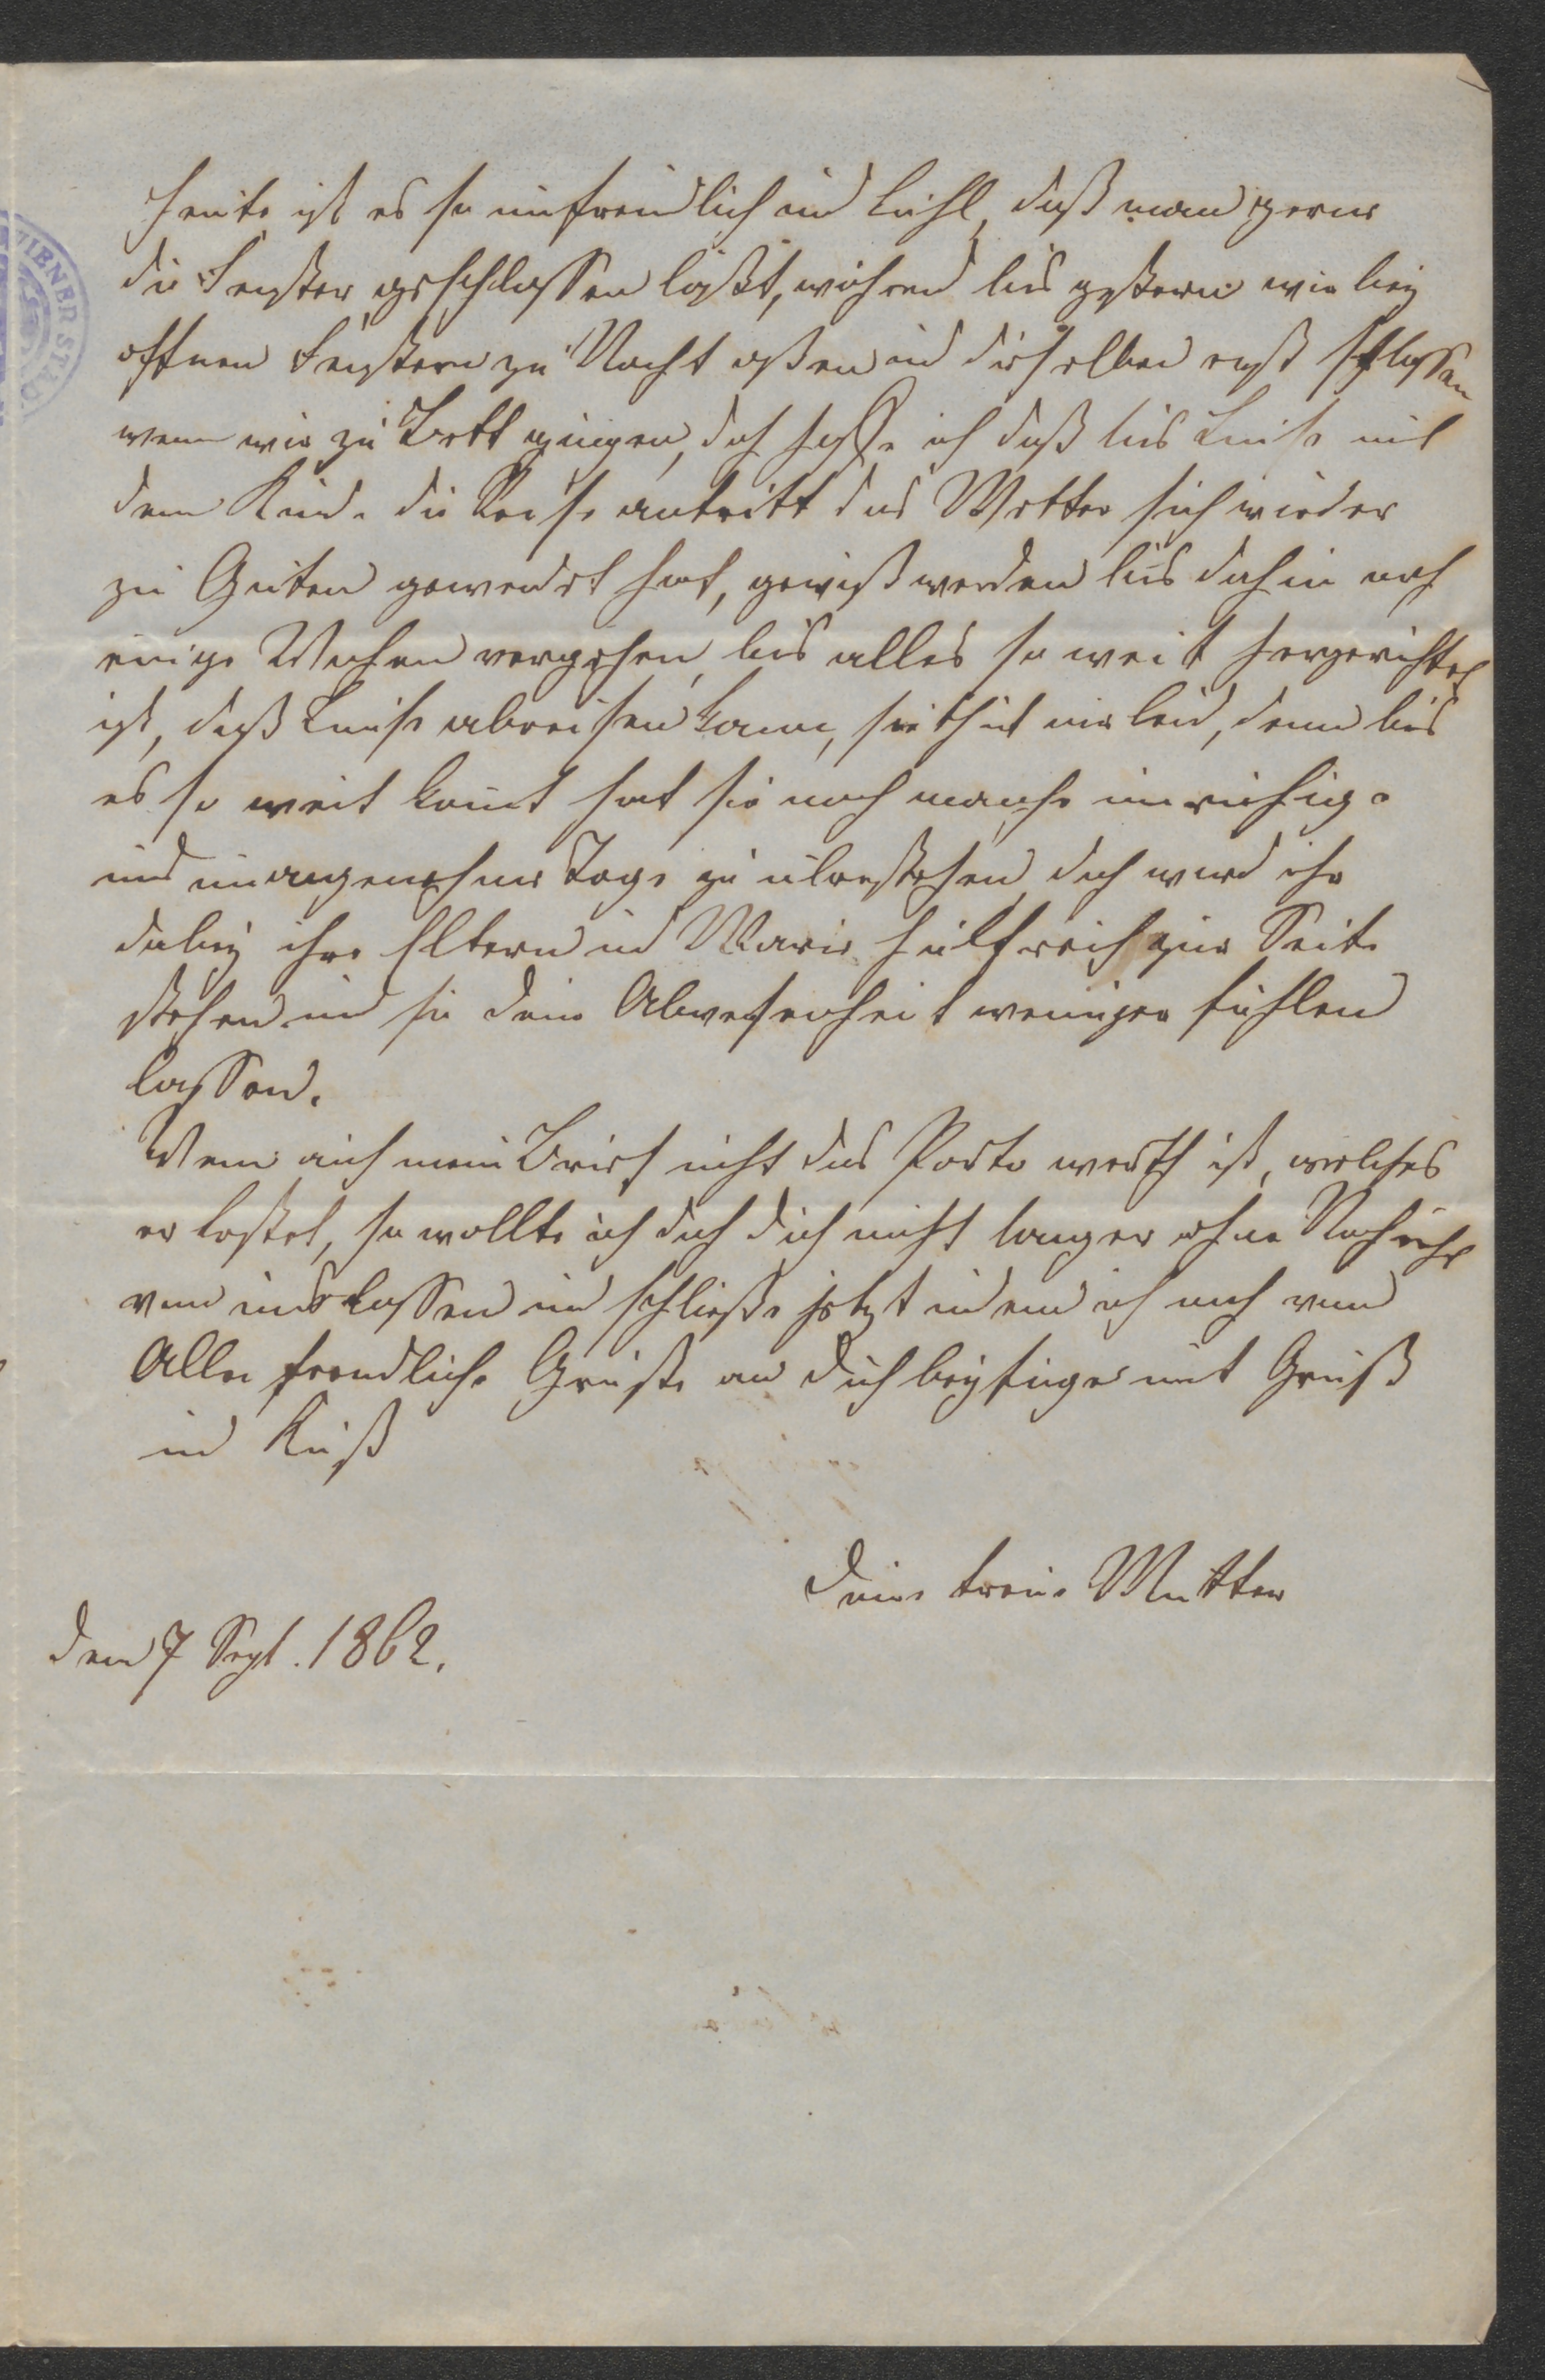 Heute ist es so unfreundlich und kühl, daß man gerne
die Fenster geschlossen läßt, während bis gestern wir bey
offnen Fenstern zu Nacht aßen und dieselben erst schlossen
wenn wir zu Bett gingen, doch hoffe ich daß bis Luise mit
dem Kinde die Reise antritt das Wetter sich wieder
zu Guten gewendet hat, gewiß werden bis dahin noch
einige Wochen vergehen, bis alles so weit hergerichtet
ist, daß Luise abreisen kann, sie thut mir leid, denn bis
es so weit komt hat sie noch manche unruhige
und unangenehme Tage zu überstehen doch werd ihr
dabey ihre Eltern und Marie hülfreich zur Seite
stehen und sie deine Abwesenheit weniger fühlen
lassen.
Wenn auch mein Brief nicht das Porto werth ist, welches
er kostet, so wollte ich doch dich nicht langer ohne Nachricht
von uns lassen und schließe jetzt indem ich noch von
Allen freundliche Grüße an dich beyfüge mit Gruß
und Kuß
Deine treue Mutter
den 7 Sept. 1862.
WIENER STAD